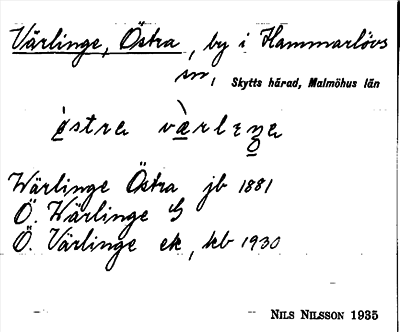 Värlinge, Östra, by i Hammarlövs
sn, Skytts härad, Malmöhus län
Wärlinge Östra jb 1881
Ö. Wärlinge
Ö. Värlinge ek, kb 1930
NILS NILSSON 1935